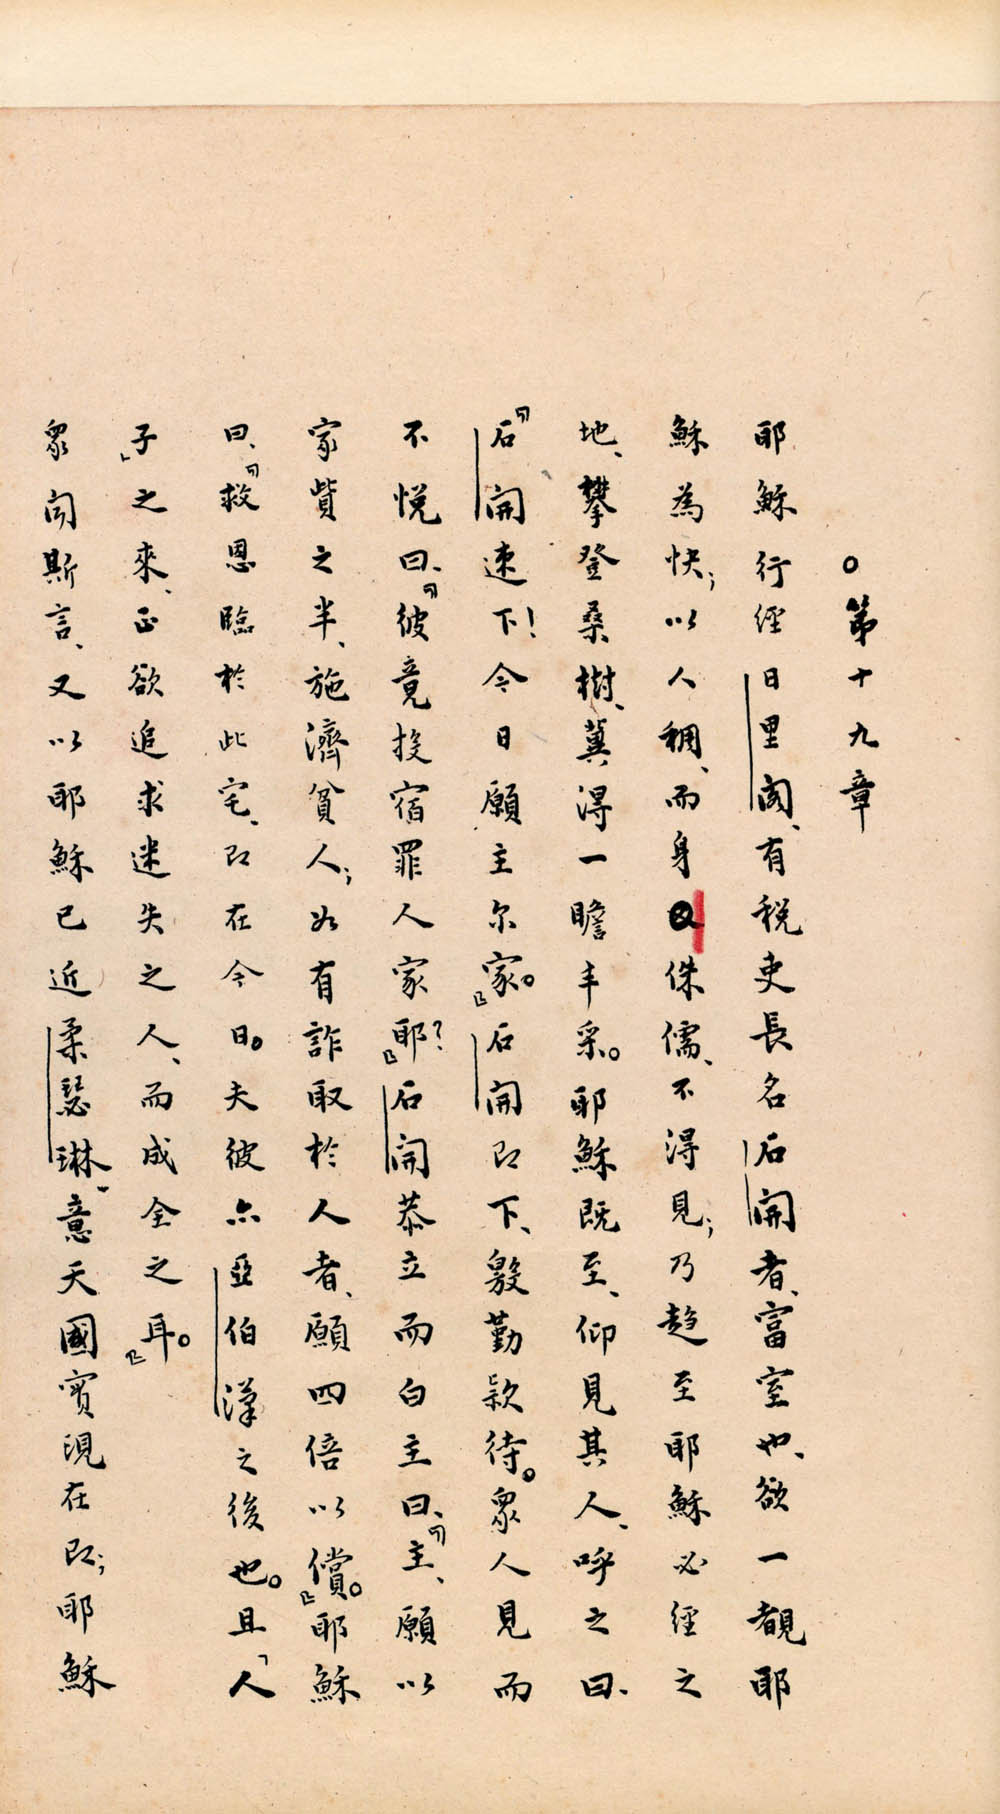 ○第十九章
耶穌行經日里閣、有稅吏長名后開者、富室也、欲一覩耶
穌為快；以人稠、而身侏儒、不得見；乃趋至耶穌必經之
地、攀登桑樹、冀得一瞻丰采。耶穌既至、仰見其人、呼之曰、
『后開速下！今日願主尔家。』后開即下、慇勤款待。眾人見而
不悅曰、『彼竟投宿罪人家耶？』后開恭立而白主曰、『主、願以
家貲之半、施濟貧人；如有詐取於人者、願四倍以償。』耶穌
曰、『救恩臨於此宅、即在今日。夫彼亦亞伯漢之後也。且「人
子」之來、正欲追求迷失之人、而成全之耳。』
眾聞斯言、又以耶穌已近柔瑟琳、意天國實現在即；耶穌